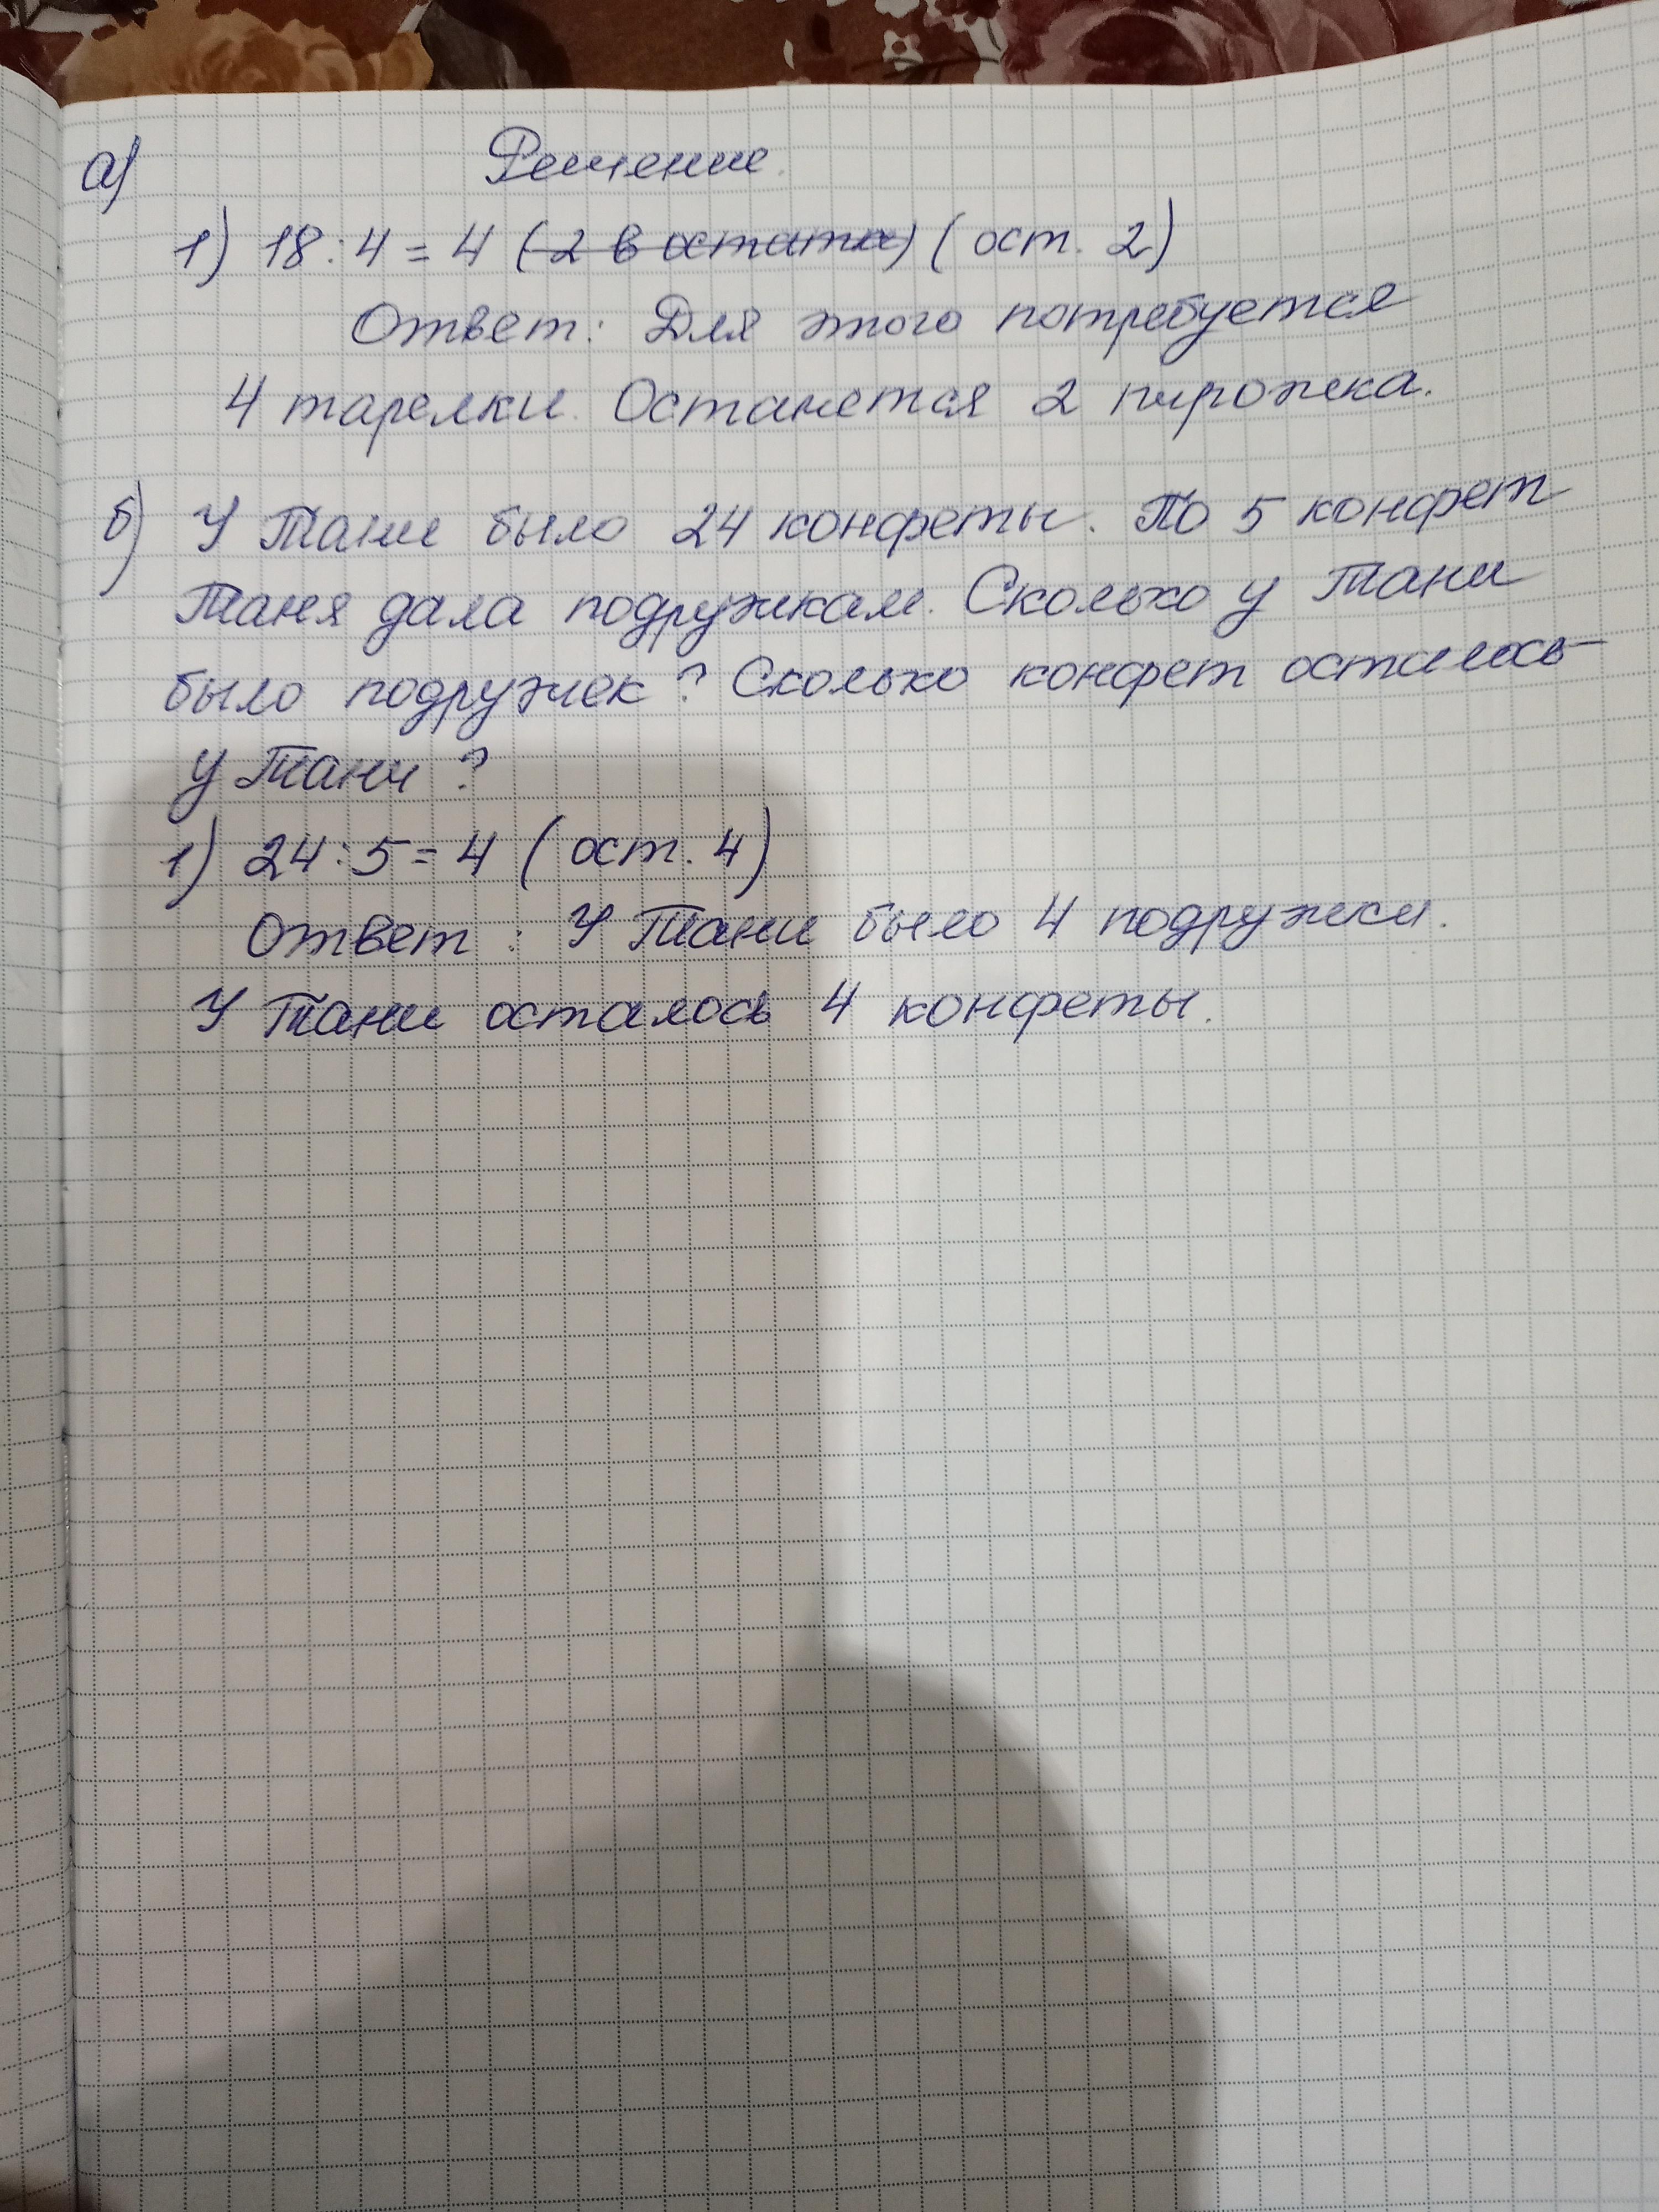 а) Решение
1) 18:4=4 (2 в остатке) (ост. 2)
Ответ: Для этого потребуется
4 тарелки. Останется 2 пирожка.
б) У Тани было 24 конфеты. По 5 конфет
Таня дала подружкам. Сколько у Тани
было подружек? Сколько конфет осталось
у Тани?
1) 24:5=4 (ост. 4)
Ответ: У Тани было 4 подружки.
У Тани осталось 4 конфеты.